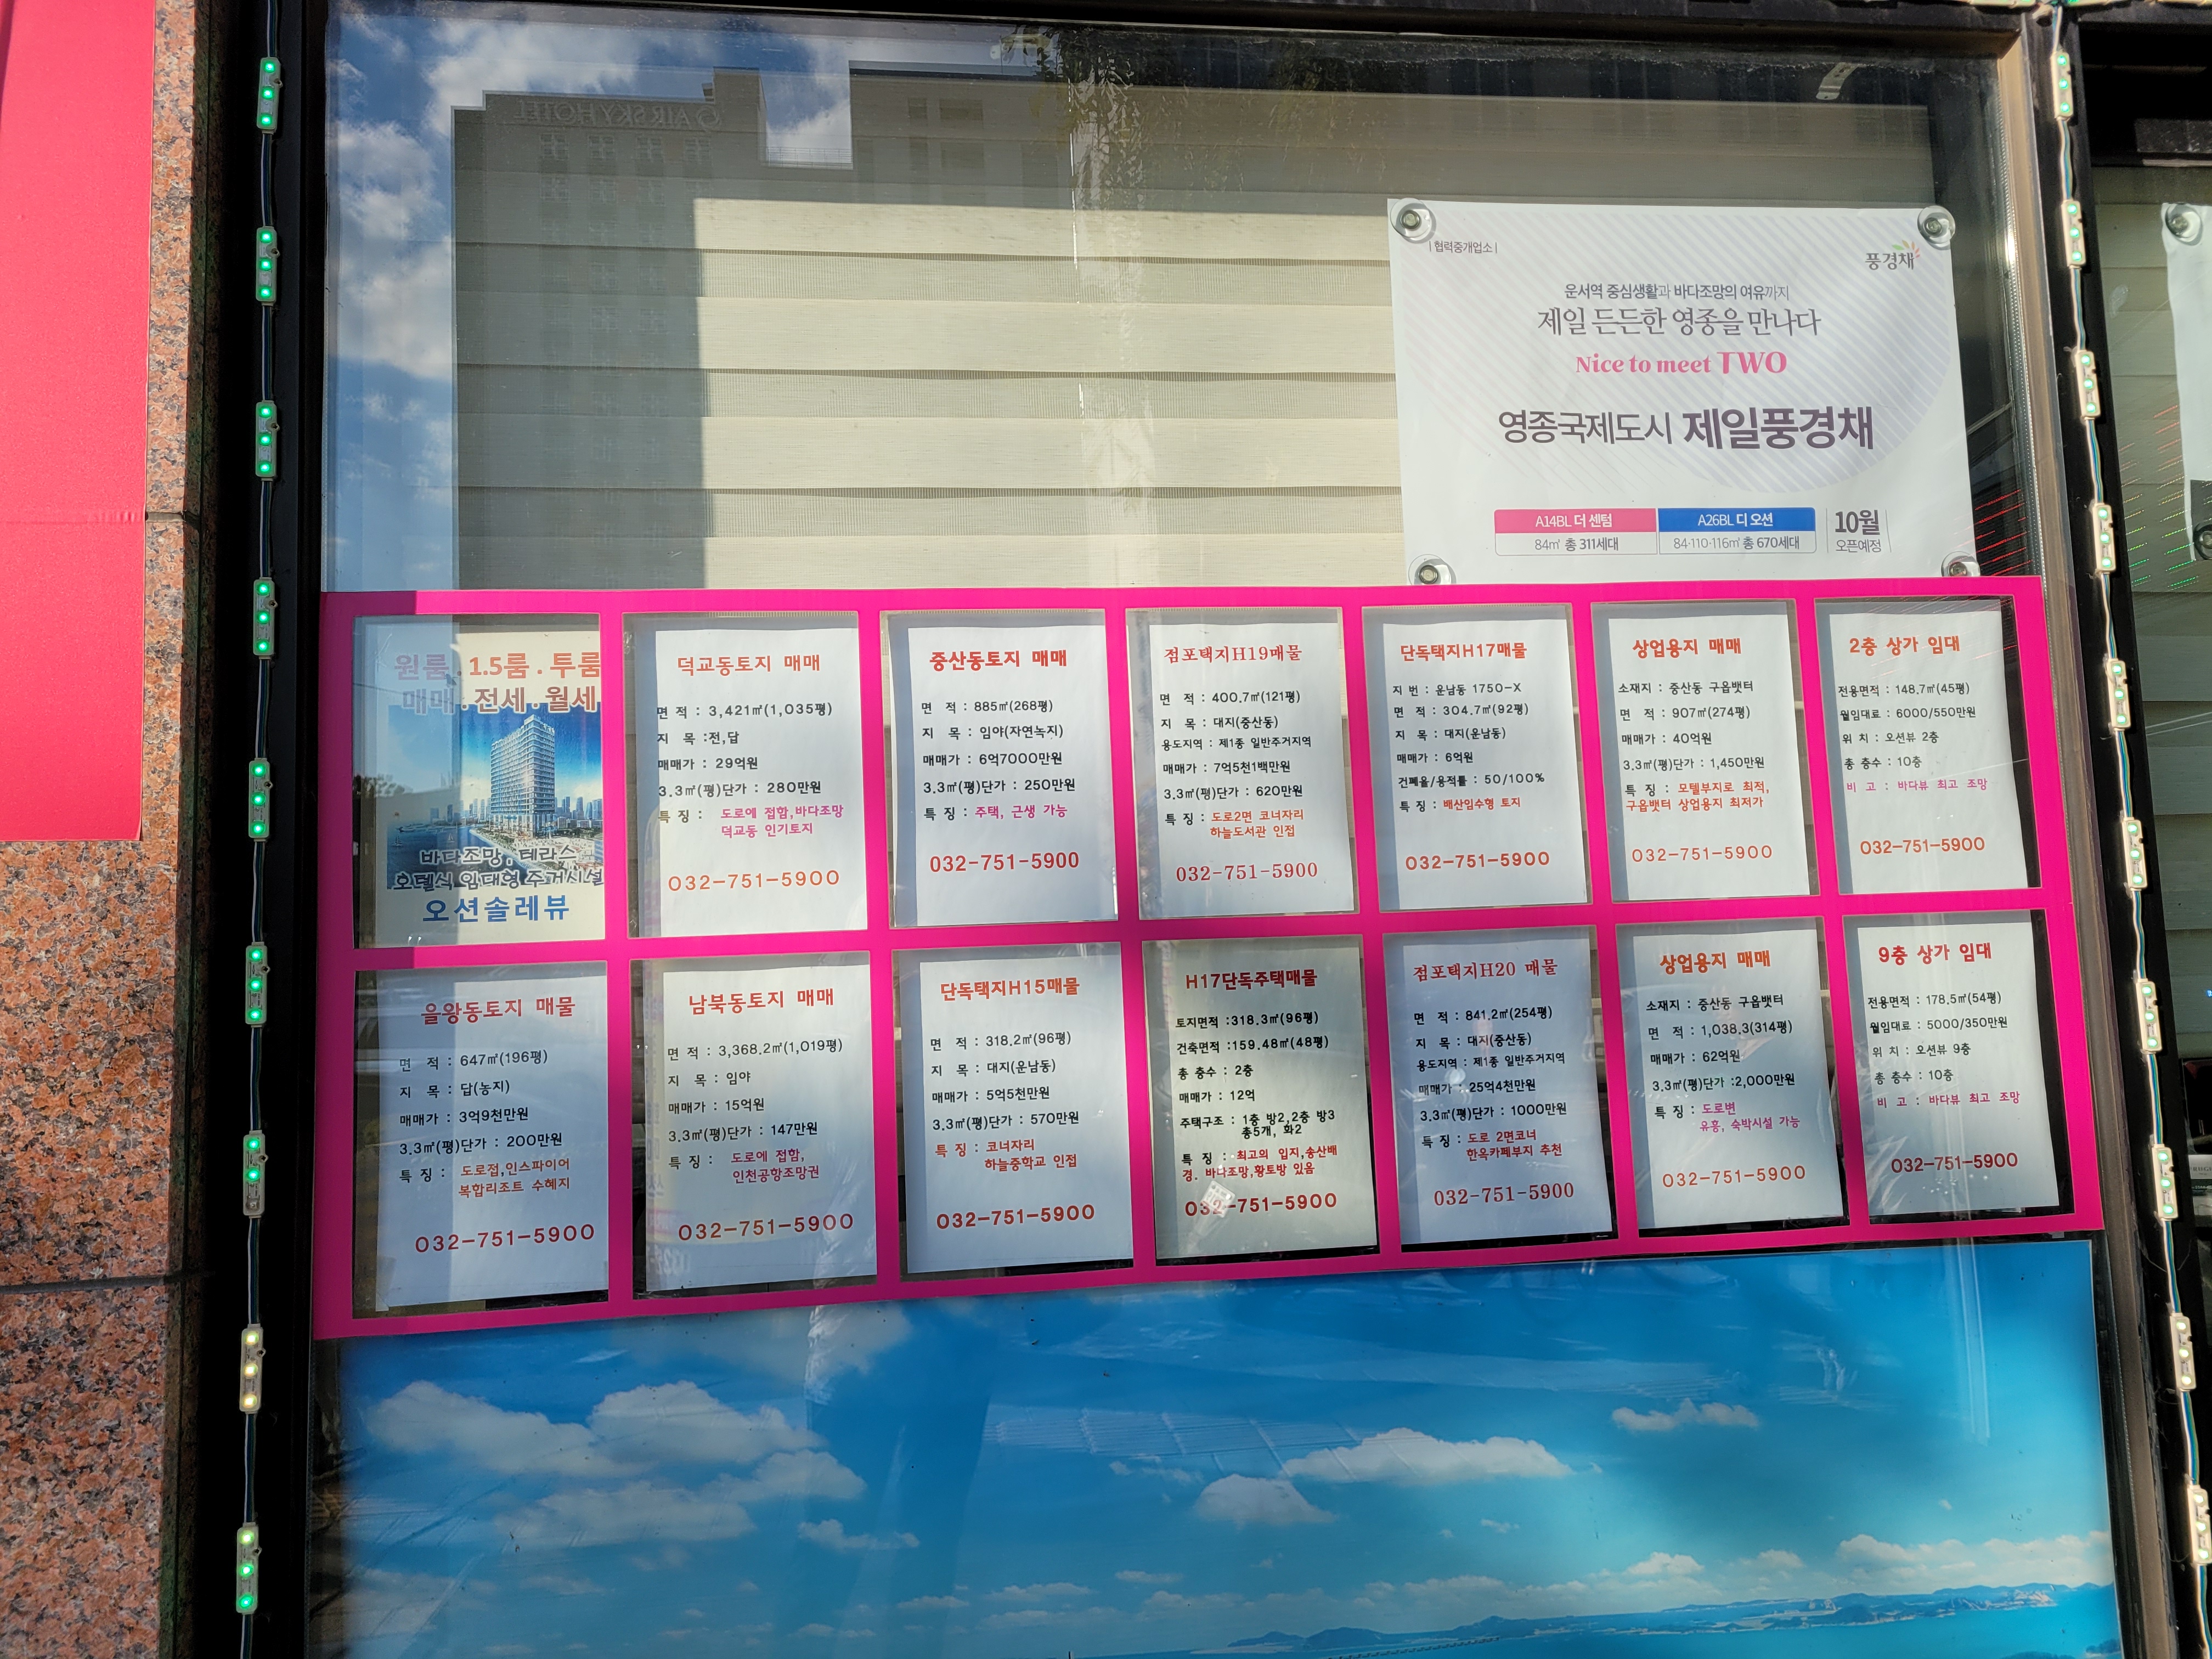 AIR SKY HOTEL
| 협력중개업소 |
풍경채
운서역 중심생활과 바다조망의 여유까지
제일 든든한 영종을 만나다
Nice to meet TWO
영종국제도시 제일풍경채
A14BL 더 센텀
84㎡ 총 311세대
A26BL 디 오션
84·110·116㎡ 총 670세대
10월
오픈예정
원룸 . 1.5룸 . 투룸
매매 . 전세 . 월세
바다조망 . 테라스
호텔식 임대형 주거시설
오션솔레뷰
덕교동토지 매매
면 적 : 3,421㎡(1,035평)
지 목 :전,답
매매가 : 29억원
3.3㎡(평)단가 : 280만원
특 징 : 도로에 접함,바다조망
덕교동 인기토지
032-751-5900
중산동토지 매매
면 적 : 885㎡(268평)
지 목 : 임야(자연녹지)
매매가 : 6억7000만원
3.3㎡(평)단가 : 250만원
특 징 : 주택, 근생 가능
032-751-5900
점포택지H19매물
면 적 : 400.7㎡(121평)
지 목 : 대지(중산동)
용도지역 : 제1종 일반주거지역
매매가 : 7억5천1백만원
3.3㎡(평)단가 : 620만원
특 징 : 도로2면 코너자리
하늘도서관 인접
032-751-5900
단독택지H17매물
지 번 : 운남동 1750-X
면 적 : 304.7㎡(92평)
지 목 : 대지(운남동)
매매가 : 6억원
건폐율/용적률 : 50/100%
특 징 : 배산임수형 토지
032-751-5900
상업용지 매매
소재지 : 중산동 구읍뱃터
면 적 : 907㎡(274평)
매매가 : 40억원
3.3㎡(평)단가 : 1,450만원
특 징 : 모텔부지로 최적,
구읍뱃터 상업용지 최저가
032-751-5900
2층 상가 임대
전용면적 : 148.7㎡(45평)
월임대료 : 6000/550만원
위 치 : 오션뷰 2층
총 층수 : 10층
비 고 : 바다뷰 최고 조망
032-751-5900
을왕동토지 매물
면 적 : 647㎡(196평)
지 목 : 답(농지)
매매가 : 3억9천만원
3.3㎡(평)단가 : 200만원
특 징 : 도로접,인스파이어
복합리조트 수혜지
032-751-5900
남북동토지 매매
면 적 : 3,368.2㎡(1,019평)
지 목 : 임야
매매가 : 15억원
3.3㎡(평)단가 : 147만원
특 징 : 도로에 접함,
인천공항조망권
032-751-5900
단독택지H15매물
면 적 : 318.2㎡(96평)
지 목 : 대지(운남동)
매매가 : 5억5천만원
3.3㎡(평)단가 : 570만원
특 징 : 코너자리
하늘중학교 인접
032-751-5900
H17단독주택매물
토지면적 :318.3㎡(96평)
건축면적 :159.48㎡(48평)
총 층수 : 2층
매매가 : 12억
주택구조 : 1층 방2,2층 방3
총5개, 화2
특 징 : 최고의 입지,송산배
경. 바다조망,황토방 있음
032-751-5900
점포택지H20 매물
면 적 : 841.2㎡(254평)
지 목 : 대지(중산동)
용도지역 : 제1종 일반주거지역
매매가 : 25억4천만원
3.3㎡(평)단가 : 1000만원
특 징 : 도로 2면코너
한옥카페부지 추천
032-751-5900
상업용지 매매
소재지 : 중산동 구읍뱃터
면 적 : 1,038.3(314평)
매매가 : 62억원
3.3㎡(평)단가 :2,000만원
특 징 : 도로변
유흥, 숙박시설 가능
032-751-5900
9층 상가 임대
전용면적 : 178.5㎡(54평)
월임대료 : 5000/350만원
위 치 : 오션뷰 9층
총 층수 : 10층
비 고 : 바다뷰 최고 조망
032-751-5900